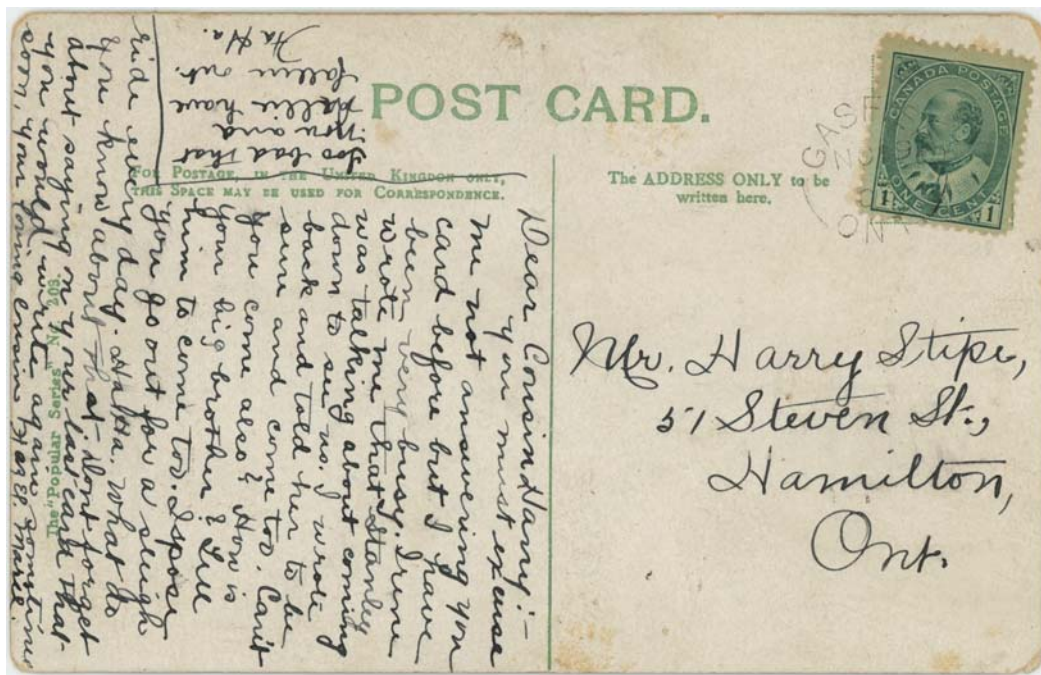 POST CARD.
FOR POSTAGE, IN THE UNITED KINGDOM ONLY,
THIS SPACE MAY BE USED FOR CORRESPONDENCE.
The ADDRESS ONLY to be
written here.
CANADA POSTAGE
1 ONE CENT 1
ONT
Mr. Harry Stipe,
51 Steven St.,
Hamilton,
Ont.
Dear Cousin
you must excuse
me not answering you
card before but I have
been very busy. Irine
wrote me that Stanly
was talking about coming
down to see us. I wrote
back and told her to be
sure and come too. Can't
you come also? How is
your big brother? Tell
him to come too. I spose
you go out for a sleigh
ride every day. Ha Ha. What do
you know about that. Dont forget
about saying on your last card that
you would write again sometime
soon. Your loving cousin
Too bad that
you and
Hallie have
fallen out.
Ha Ha.
The "Popular Series" No. 203.